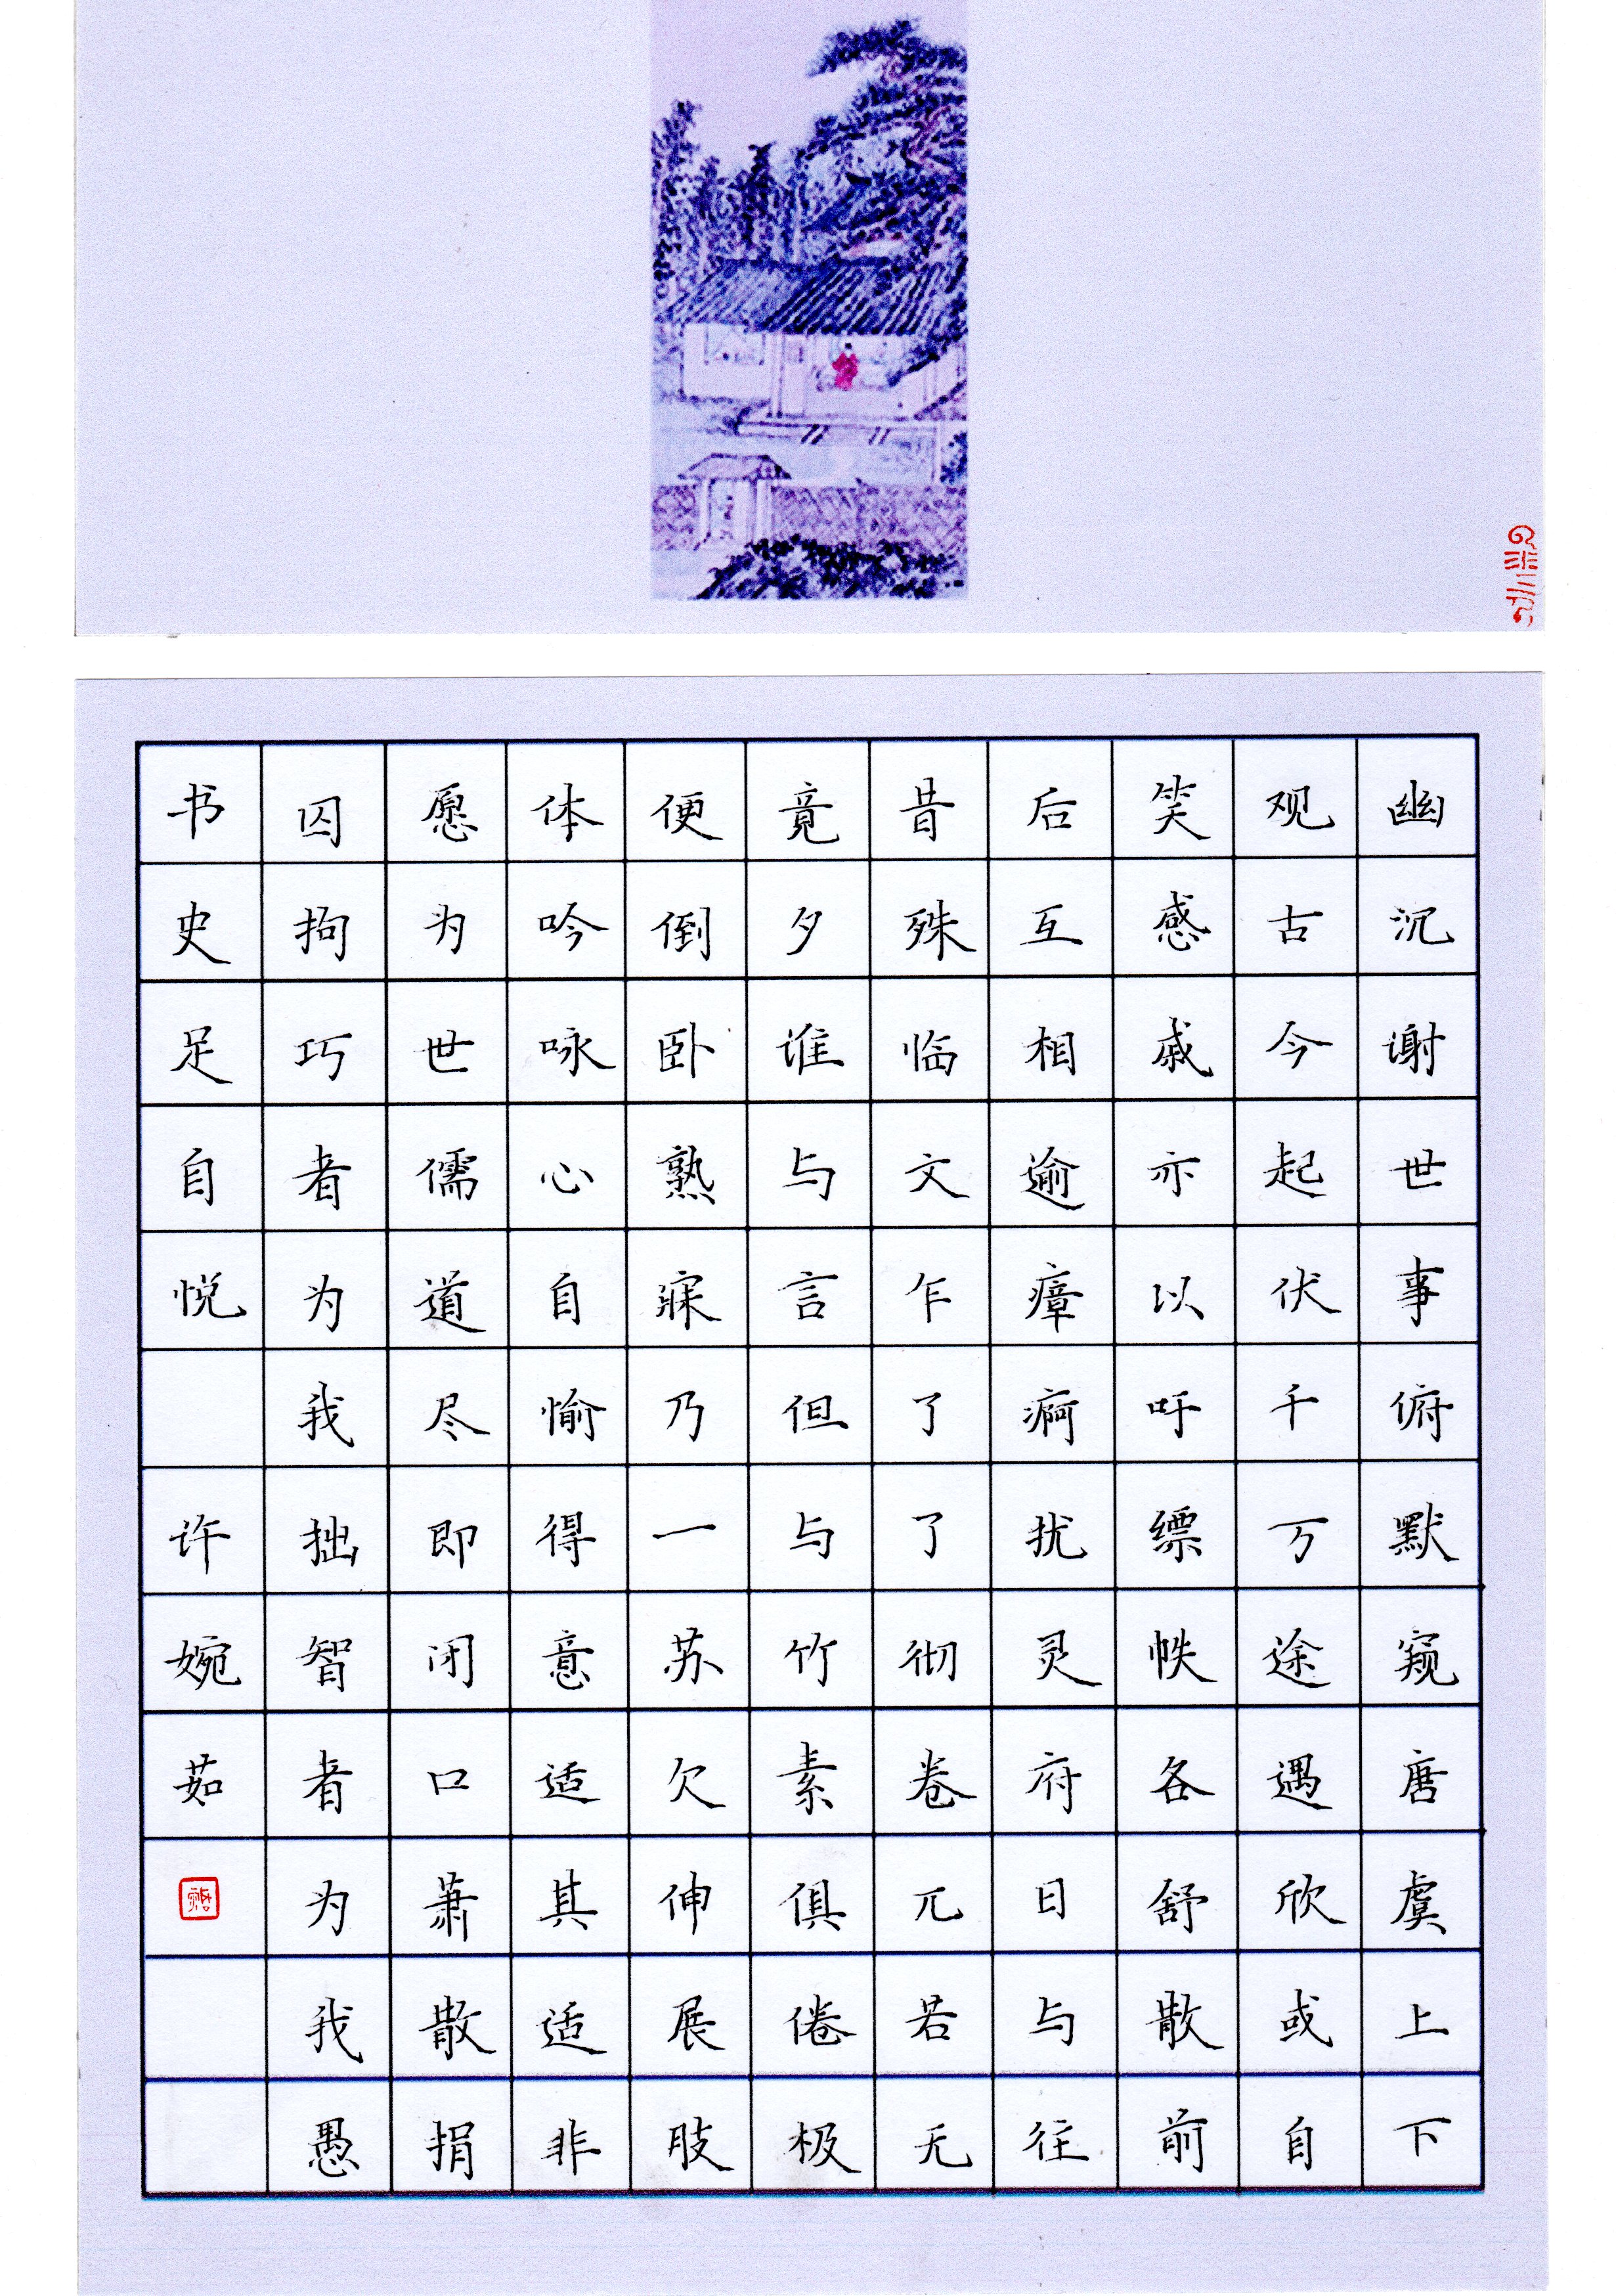 幽沉谢世事俯默窥唐虞上下
观古今起伏千万途遇欣或自
笑感戚亦以吁缥帙各舒散前
后互相逾瘴疴扰灵府日与往
昔殊临文乍了了彻卷兀若无
竟夕谁与言但与竹素俱倦极
便倒卧熟寐乃一苏欠伸展肢
体吟咏心自愉得意适其适非
愿为世儒道尽即闭口萧散捐
囚拘巧者为我拙智者为我愚
书史足自悦
许婉茹